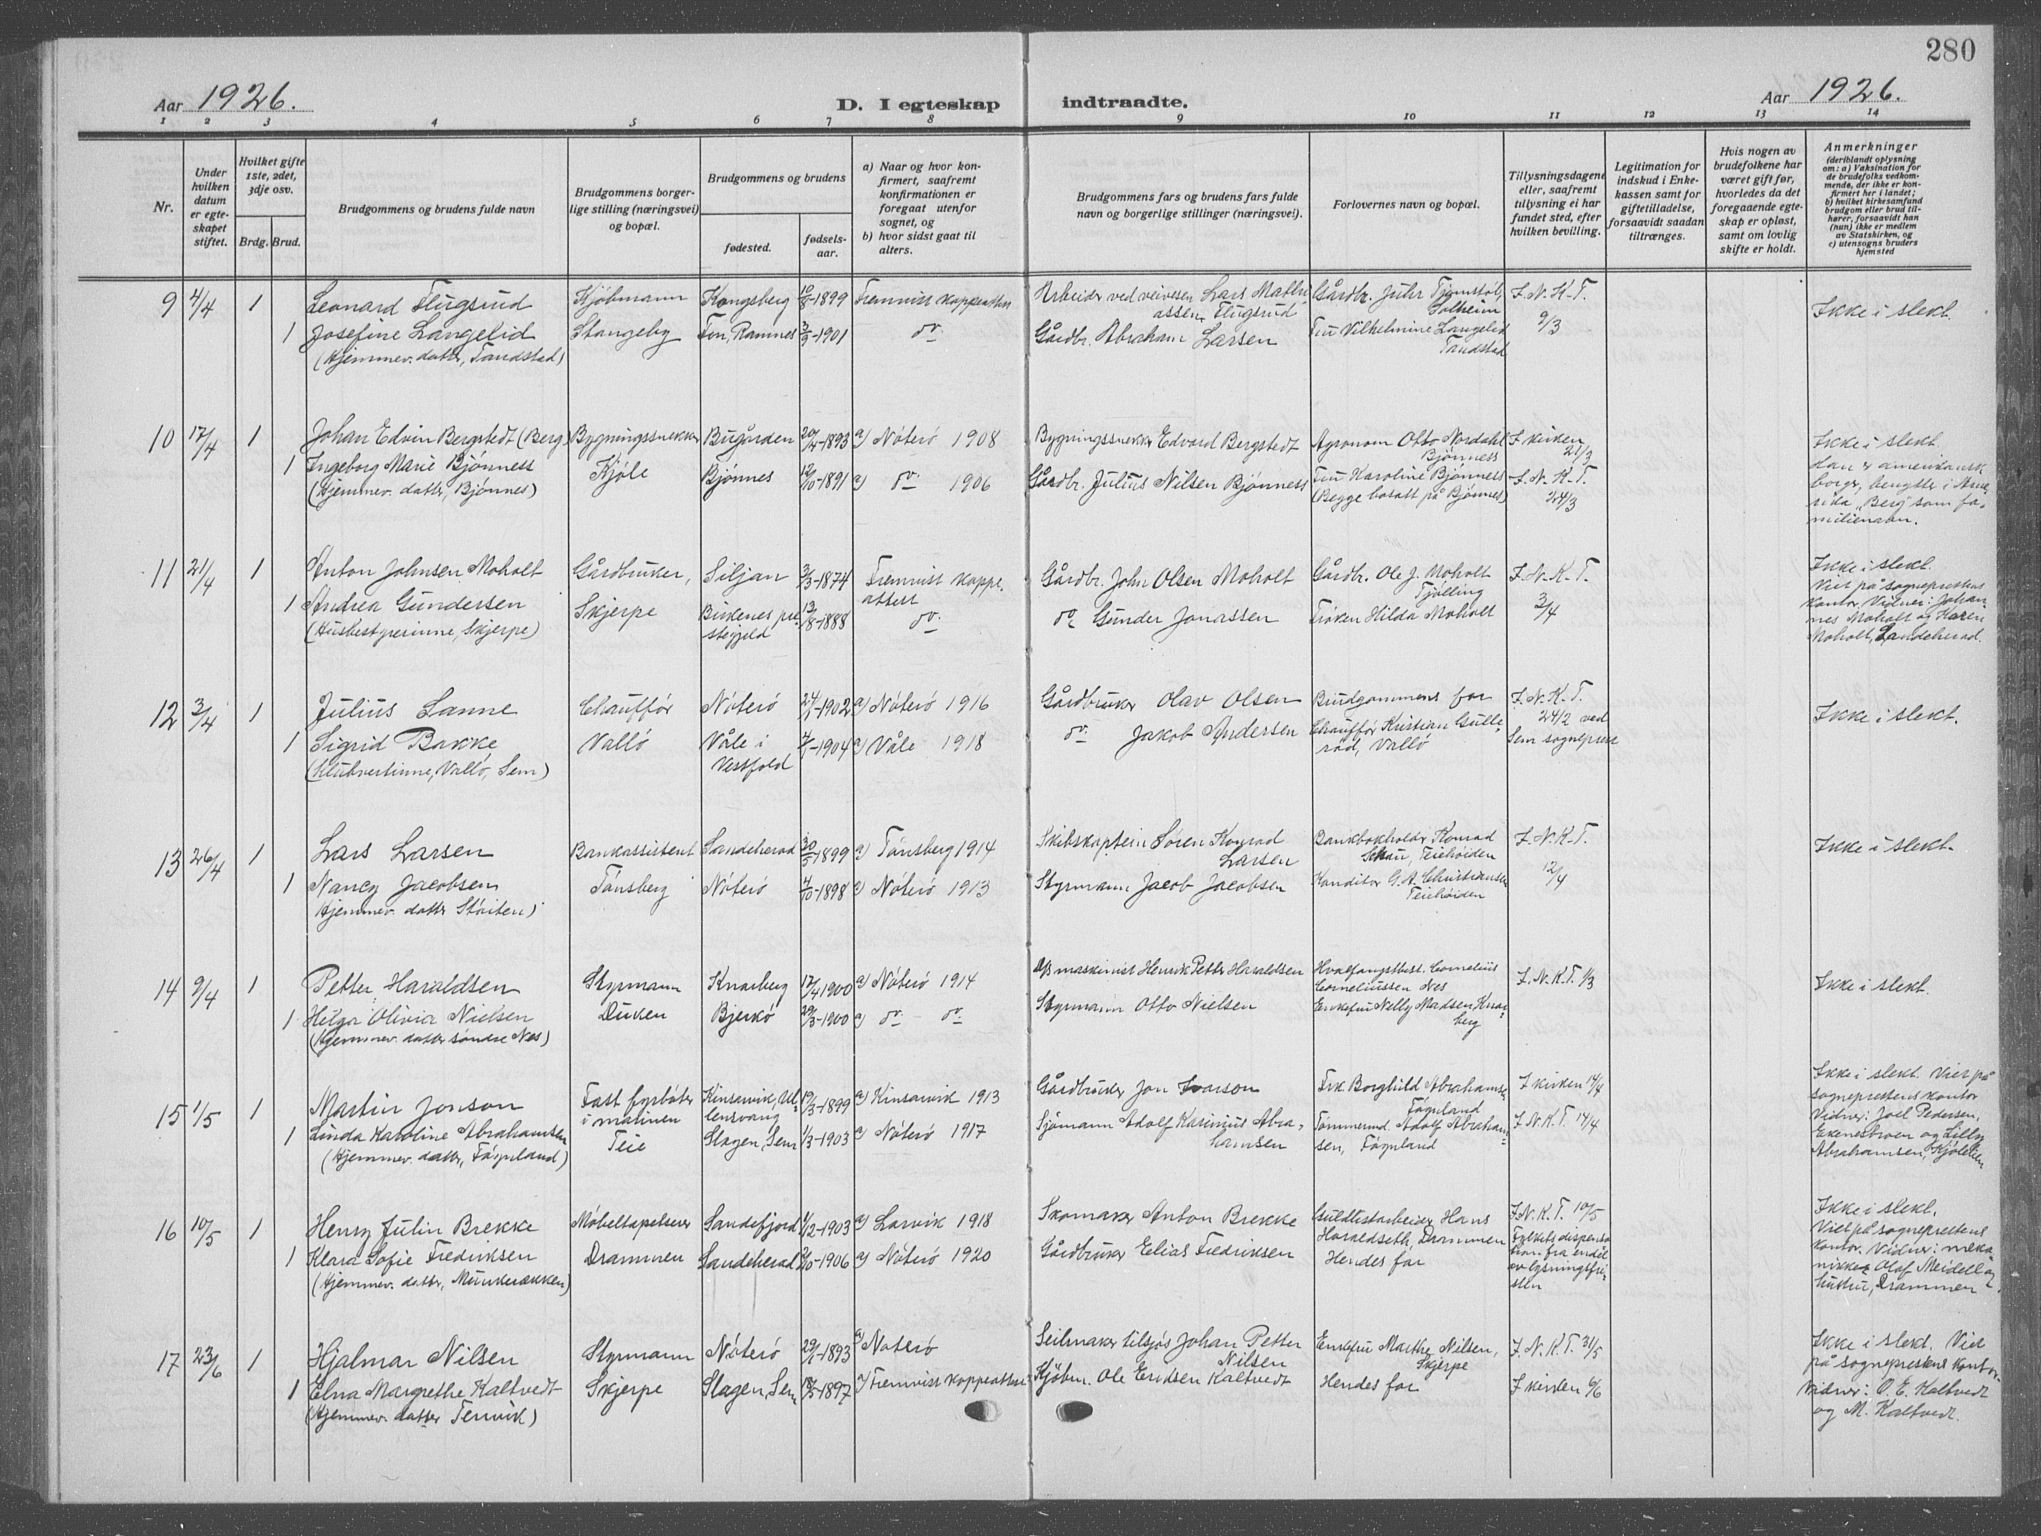 280
Aar 1926.
D. I egteskap indtraadte.
Aar 1926.
1 2 3 4 5 6 7 8 9 10 11 12 13 14
Nr.
Under hvilken datum er egteskapet stiftet.
Hvilket gifte 1ste, 2det, 3dje osv.
Brdg. Brud.
Brudgommens og brudens fulde navn
Brudgommens borgerlige stilling (næringsvei) og bopæl.
Brudgommens og brudens
fødested.
fødselsaar.
a) Naar og hvor konfirmert, saafremt konfirmationen er foregaat utenfor sognet, og
b) hvor sidst gaat til alters.
Brudgommens fars og brudens fars fulde navn og borgerlige stillinger (næringsvei).
Forlovernes navn og bopæl.
Tillysningsdagene eller, saafremt tillysning ei har fundet sted, efter hvilken bevilling.
Legitimation for indskud i Enkekassen samt for giftetilladelse, forsaavidt saadan tiltrænges.
Hvis nogen av brudefolkene har været gift før, hvorledes da det foregaaende egteskap er opløst, samt om lovlig skifte er holdt.
Anmerkninger
(deriblandt oplysning om: a) Vaksination for de brudefolks vedkommende, der ikke er konfirmert her i landet; b) hvilket kirkesamfund brudgom eller brud tilhører, forsaavidt han (hun) ikke er medlem av Statskirken, og c) utensogns bruders hjemsted
9 4/4 1 Leonard Flugsrud Kjøbmann Kongsberg 10/8-1899 Fremvist koppeattest Arbeider ved veivesen Lars Mathiassen Flugsrud Gårdbr. Juhr Tjomstøl, Solheim I. N. K. T. 9/3 Ikke i slekt.
1 Josefine Langelid Stangeby Fon, Ramnes 3/9-1901 do Gårdbr. Abraham Larsen Fru Vilhelmine Langelid Tandstad
(Hjemmev. datter, Tandstad)
10 17/4 1 Johan Edvin Bergstedt (Berg) Bygningssnekker Bugården 20/4-1893 a) Nøterø 1908 Bygningssnekker Edvard Bergstedt Agronom Otto Nordahl Bjønness I kirken 21/3 Ikke i slekt.
Han er amerikansk borger, benytter i Amerika "Berg" som familienavn.
1 Ingeborg Marie Bjønness Kjøle Bjønnes 12/10-1891 a) do 1906 Gårdbr. Julius Nilsen Bjønness Fru Karoline Bjønness (Begge bosatt på Bjønnes) I. N. K. T. 24/3
(Hjemmev. datter, Bjønnes)
11 21/4 1 Anton Johnsen Moholt Gårdbruker, Siljan 3/3-1874 Fremvist koppeattest Gårdbr. John Olsen Moholt Gårdbr. Ole J. Moholt Tjølling I. N. K. T. 3/4 Ikke i slekt.
Viet på sogneprestens kontor. Vidner: Johannes Moholt og Karen Moholt, Sandeherad.
1 Andrea Gundersen Skjerpe Birkenes prestegjeld 13/8-1888 do do Gunder Jonassen Frøken Hilda Moholt
(Husbestyrerinne, Skjerpe)
12 3/4 1 Julius Sanne Chauffør Nøterø 24/1-1902 a) Nøterø 1916 Gårdbruker Olav Olsen Brudgommens far I. N. K. T. 24/2 ved Sem sogneprest Ikke i slekt.
1 Sigrid Bakke Vallø Våle i Vestfold 7/1-1904 a) Våle 1918 do Jakob Andersen Chauffør Kristian Gullerød, Vallø
(Klubvertinne, Vallø, Sem)
13 26/4 1 Lars Larsen Bankassistent Sandeherad 30/5-1899 a) Tønsberg 1914 Skibskaptein Søren Konrad Larsen Bankbokholder Konrad Schau, Teiehøiden I. N. K. T. 12/4 Ikke i slekt.
1 Nancy Jacobsen Tønsberg Nøterø 4/10-1898 a) Nøterø 1913 Styrmann Jacob Jacobsen Konditor G. A. Christiansen Teiehøiden
Hjemmev. datter Støiten)
14 9/4 1 Petter Haraldsen Styrmann Knarberg 17/4-1900 a) Nøterø 1914 D/S maskinist Henrik Petter Haraldsen Hvalfangstbest. Cornelius Corneliussen Nes I. N. K. T. 1/3 Ikke i slekt.
1 Helga Olivia Nielsen Duken Bjerkø 29/3-1900 a) do do Styrmann Otto Nielsen Enkefru Nelly Madsen Knarberg
(Hjemmev. datter søndre Nes)
15 1/5 1 Martin Jonson Fast fyrbøter i marinen Kinsarvik, Ullensvang 19/3-1899 a) Kinsarvik 1913 Gårdbruker Jon Ivarson Frk Borghild Abrahamsen Føynland I kirken 14/4 Ikke i slekt. Viet på sogneprestens kontor Vidner: Joel Pedersen, Ekenesbroen og Lilly Abrahamsen, Kjølebien
1 Linda Karoline Abrahamsen Teie Slagen, Sem 1/3-1903 a) Nøterø 1917 Sjømann Adolf Kasinius Abrahamsen Tømmermd. Adolf Abrahamsen, Føynland I. N. K. T. 14/4
(Hjemmev. datter, Føynland)
16 10/5 1 Henry Julin Brekke Møbeltapetserer Sandefjord 1/2-1903 a) Larvik 1918 Skomaker Anton Brekke Gullistarbeider Hans Haraldseth, Drammen I. N. K. T. 10/5 Fylkets dispensasjon fra en del av lysningsfristen Ikke i slekt.
Viet på sogneprestens kontor. Vidner: mekaniker Olaf Meidell og hustru, Drammen.
1 Klara Sofie Fredriksen Drammen Sandeherad 2/10-1906 a) Nøterø 1920 Gårdbruker Elias Fredriksen Hendes far
(Hjemmev. datter, Munderekken)
17 23/6 1 Hjalmar Nilsen Styrmann Nøterø 29/1-1893 a) Nøterø Seilmaker tilsjøs Johan Petter Nilsen Enkefru Marthe Nilsen, Skjerpe I. N. K. T. 31/5 Ikke i slekt. Viet på sogneprestens kontor. Vidner: O. E. Kaltvedt og M. Kaltvedt.
1 Elna Margrethe Kaltvedt Skjerpe Slagen, Sem 18/2-1897 a) Fremvist koppeattest Kjøbm. Ole Eriksen Kaltvedt Hendes far I kirken 6/6
(Hjemmev. datter Tenvik)